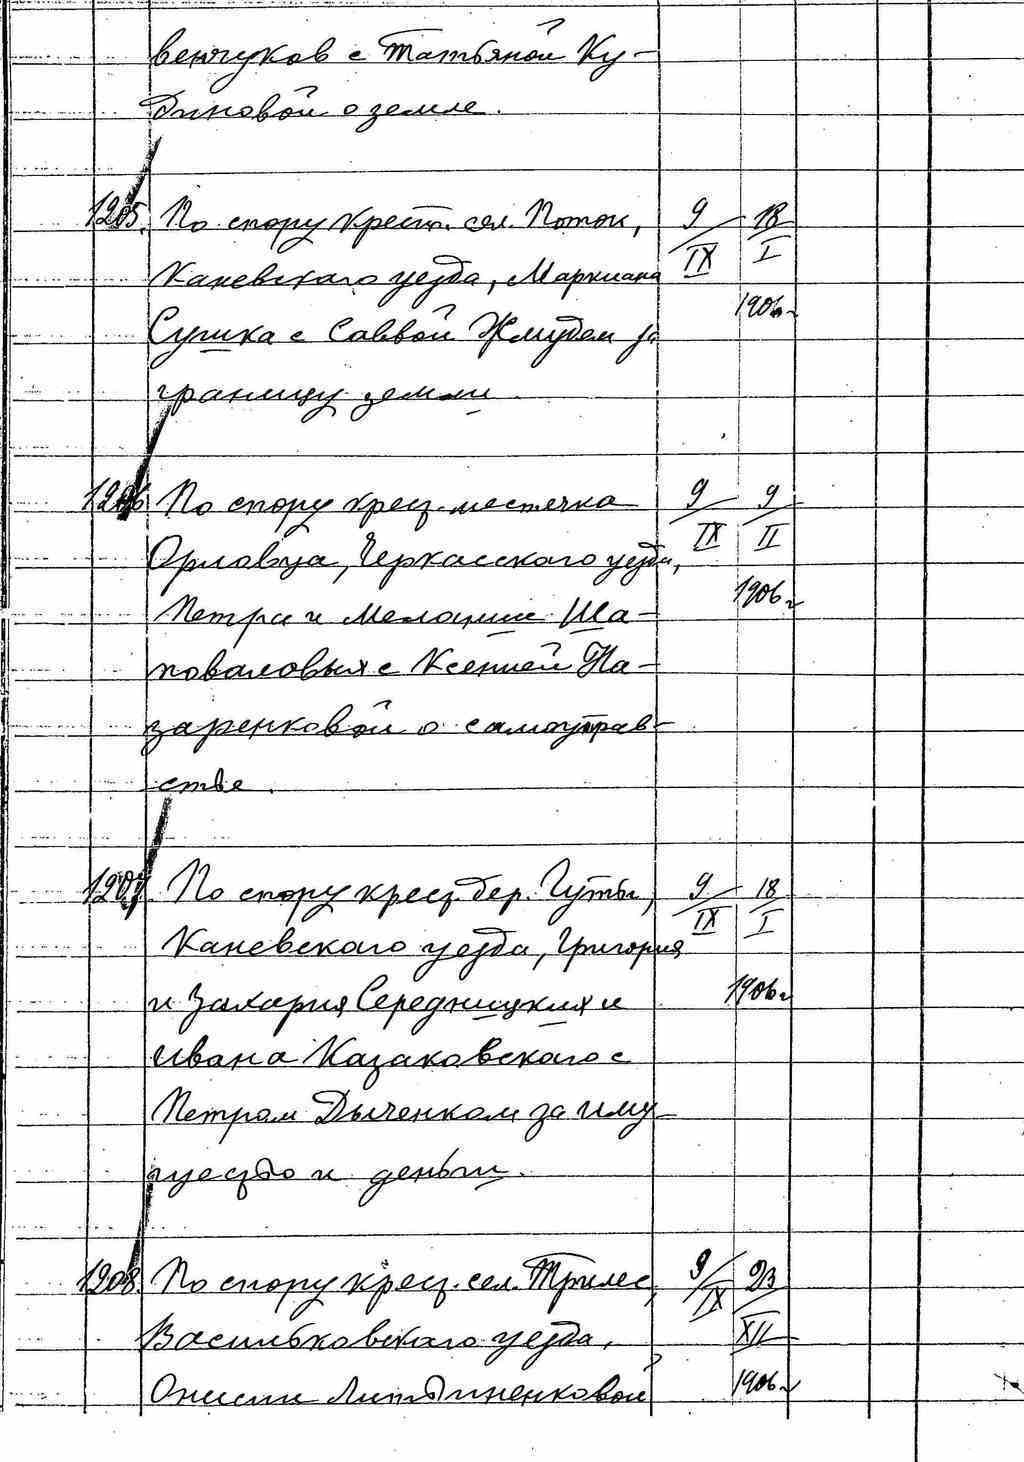 венчуков с Татьяной Ку-
диновой о земле.
1205. По спору крест. сел. Поток, 9/IX 18/I
Каневского уезда, Маркиана 1906 г
Сушка с Саввой Жмудем за
границу земли
1206 По спору крест. местечка 9/IX 9/II
Орловца, Черкасского уезда, 1906 г
Петра и Мелании Ша-
поваловых с Ксенией На-
заренковой о самоуправ-
стве.
1207. По спору крест. дер. Гуты, 9/IX 18/I
Каневского уезда, Григория
и Захария Середницких и 1906 г
Ивана Казаковского с
Петром Дыченком за иму-
щество и деньги.
1208. По спору крест. сел. Трилес, 9/IX 23/XII
Васильковского уезда,
Онисии Литвиненковой 1906 г